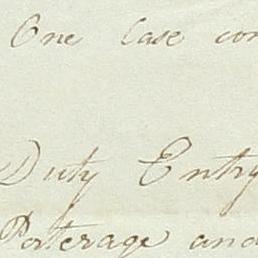 One Case con
Duty Entry
Porterage and